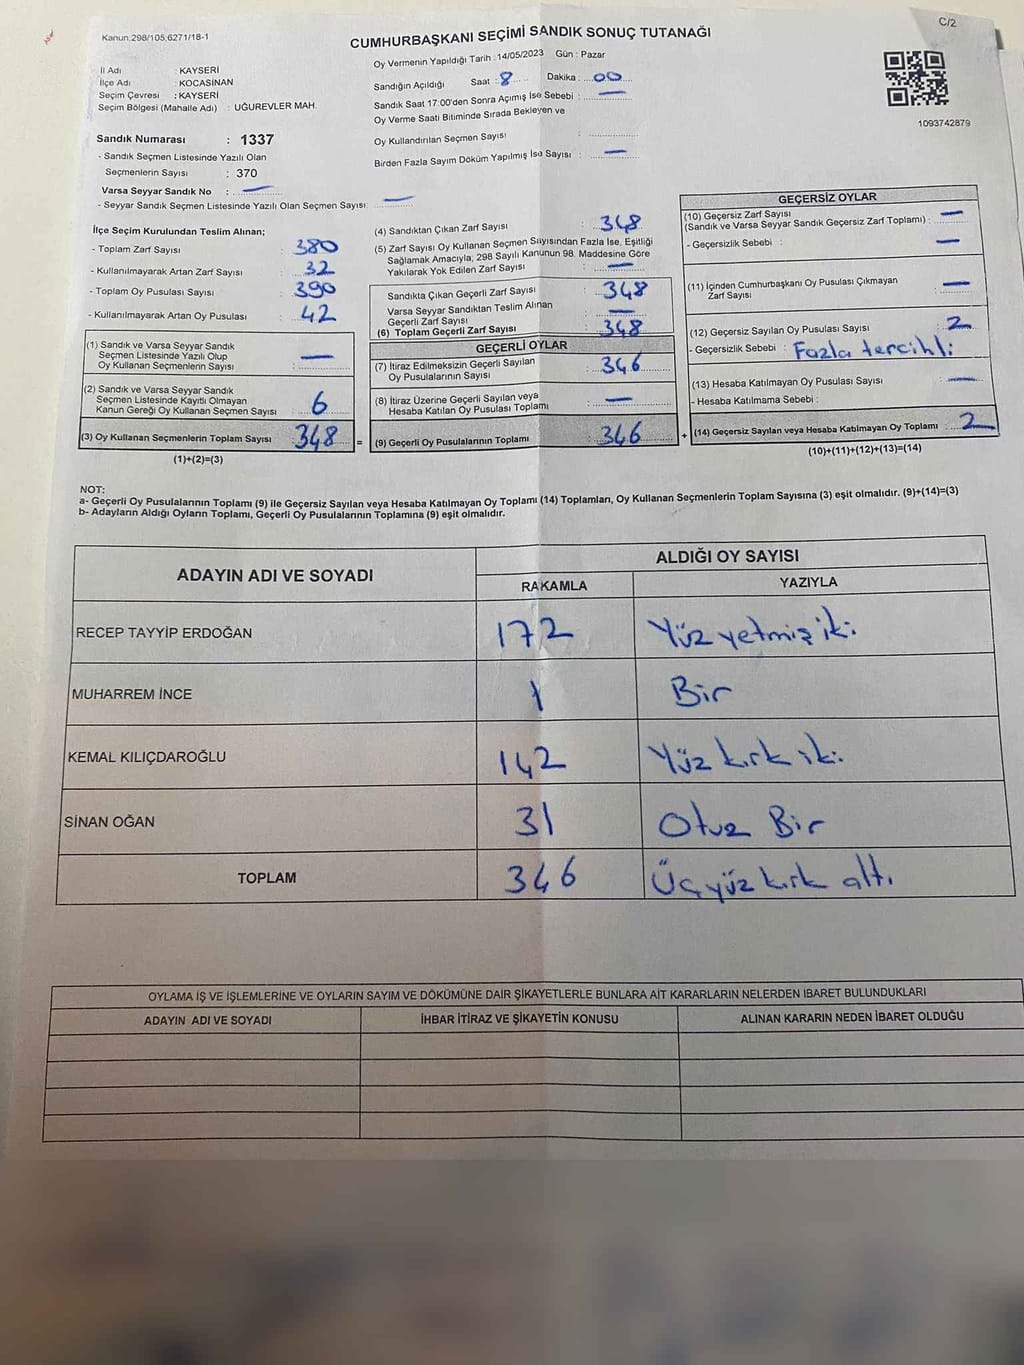 C/2
Kanun:298/105;6271/18-1
CUMHURBAŞKANI SEÇİMİ SANDIK SONUÇ TUTANAĞI
İl Adı : KAYSERİ
İlçe Adı : KOCASİNAN
Seçim Çevresi : KAYSERİ
Seçim Bölgesi (Mahalle Adı) : UĞUREVLER MAH.
Oy Vermenin Yapıldığı Tarih : 14/05/2023 Gün : Pazar
Sandığın Açıldığı Saat : 8 Dakika : 00
Sandık Saat 17:00'den Sonra Açımış İse Sebebi : —
Oy Verme Saati Bitiminde Sırada Bekleyen ve
Oy Kullandırılan Seçmen Sayısı :
Birden Fazla Sayım Döküm Yapılmış İse Sayısı : —
1093742879
Sandık Numarası : 1337
- Sandık Seçmen Listesinde Yazılı Olan
Seçmenlerin Sayısı : 370
Varsa Seyyar Sandık No : —
- Seyyar Sandık Seçmen Listesinde Yazılı Olan Seçmen Sayısı: —
İlçe Seçim Kurulundan Teslim Alınan;
- Toplam Zarf Sayısı : 380
- Kullanılmayarak Artan Zarf Sayısı : 32
- Toplam Oy Pusulası Sayısı : 390
- Kullanılmayarak Artan Oy Pusulası : 42
(1) Sandık ve Varsa Seyyar Sandık
Seçmen Listesinde Yazılı Olup
Oy Kullanan Seçmenlerin Sayısı : —
(2) Sandık ve Varsa Seyyar Sandık
Seçmen Listesinde Kayıtlı Olmayan
Kanun Gereği Oy Kullanan Seçmen Sayısı : 6
(3) Oy Kullanan Seçmenlerin Toplam Sayısı : 348 =
(1)+(2)=(3)
(4) Sandıktan Çıkan Zarf Sayısı : 348
(5) Zarf Sayısı Oy Kullanan Seçmen Sayısından Fazla İse, Eşitliği
Sağlamak Amacıyla; 298 Sayılı Kanunun 98. Maddesine Göre
Yakılarak Yok Edilen Zarf Sayısı : —
Sandıkta Çıkan Geçerli Zarf Sayısı : 348
Varsa Seyyar Sandıktan Teslim Alınan
Geçerli Zarf Sayısı : —
(6) Toplam Geçerli Zarf Sayısı : 348
GEÇERLİ OYLAR
(7) İtiraz Edilmeksizin Geçerli Sayılan
Oy Pusulalarının Sayısı : 346
(8) İtiraz Üzerine Geçerli Sayılan veya
Hesaba Katılan Oy Pusulası Toplamı : —
(9) Geçerli Oy Pusulalarının Toplamı : 346 +
GEÇERSİZ OYLAR
(10) Geçersiz Zarf Sayısı
(Sandık ve Varsa Seyyar Sandık Geçersiz Zarf Toplamı) : —
- Geçersizlik Sebebi : —
(11) İçinden Cumhurbaşkanı Oy Pusulası Çıkmayan
Zarf Sayısı : —
(12) Geçersiz Sayılan Oy Pusulası Sayısı : 2
- Geçersizlik Sebebi : Fazla tercihli
(13) Hesaba Katılmayan Oy Pusulası Sayısı : —
- Hesaba Katılmama Sebebi :
(14) Geçersiz Sayılan veya Hesaba Katılmayan Oy Toplamı : 2
(10)+(11)+(12)+(13)=(14)
NOT:
a- Geçerli Oy Pusulalarının Toplamı (9) ile Geçersiz Sayılan veya Hesaba Katılmayan Oy Toplamı (14) Toplamları, Oy Kullanan Seçmenlerin Toplam Sayısına (3) eşit olmalıdır. (9)+(14)=(3)
b- Adayların Aldığı Oyların Toplamı, Geçerli Oy Pusulalarının Toplamına (9) eşit olmalıdır.
ADAYIN ADI VE SOYADI ALDIĞI OY SAYISI
RAKAMLA YAZIYLA
RECEP TAYYİP ERDOĞAN 172 Yüz yetmiş iki
MUHARREM İNCE 1 Bir
KEMAL KILIÇDAROĞLU 142 Yüz kırk iki
SİNAN OĞAN 31 Otuz Bir
TOPLAM 346 Üçyüz kırk altı
OYLAMA İŞ VE İŞLEMLERİNE VE OYLARIN SAYIM VE DÖKÜMÜNE DAİR ŞİKAYETLERLE BUNLARA AİT KARARLARIN NELERDEN İBARET BULUNDUKLARI
ADAYIN ADI VE SOYADI İHBAR İTİRAZ VE ŞİKAYETİN KONUSU ALINAN KARARIN NEDEN İBARET OLDUĞU